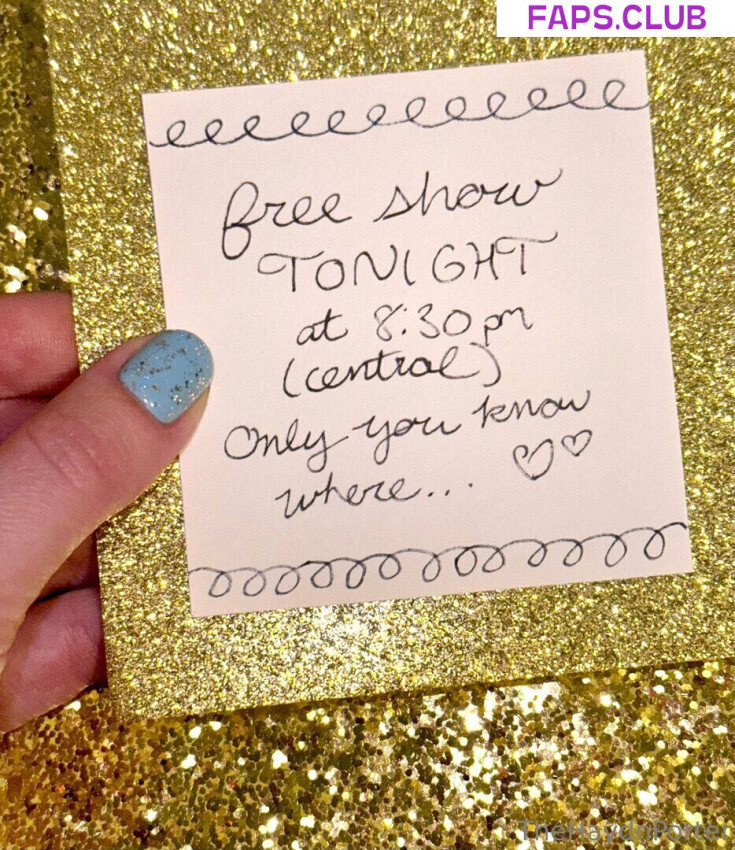 FAPS.CLUB
free show
TONIGHT
at 8:30 pm
(central)
Only you know
where...
TheHaydnPorter